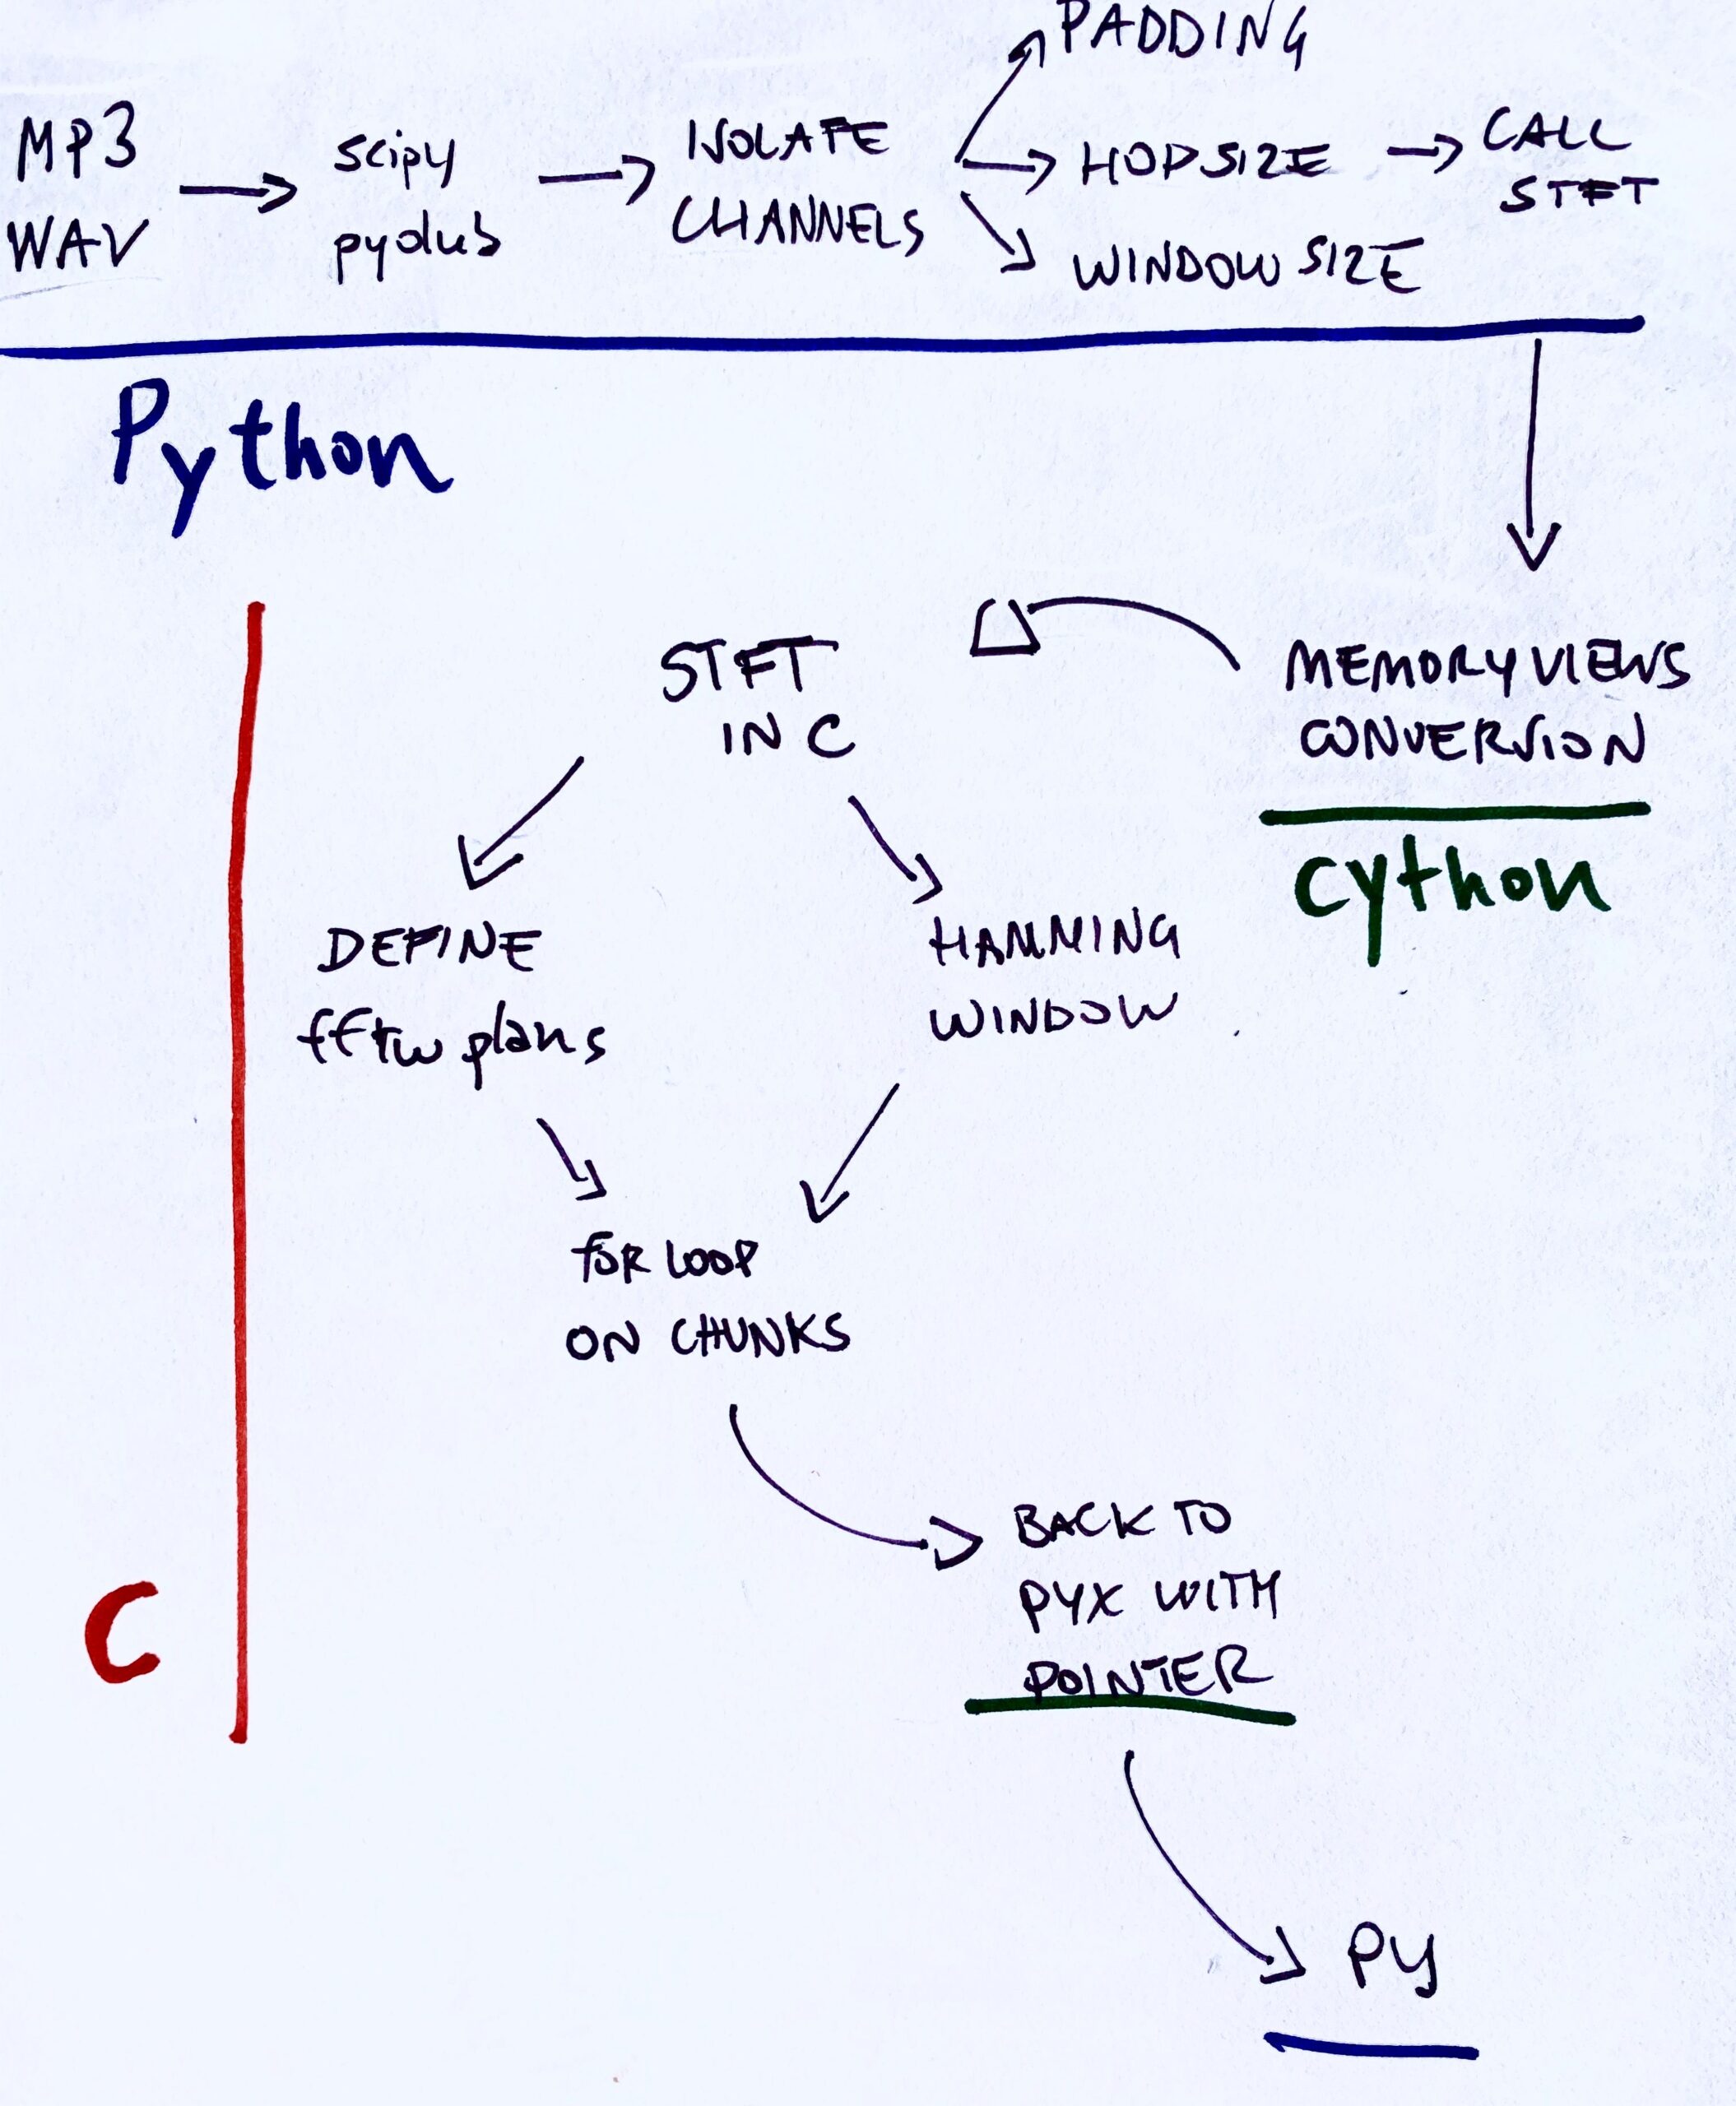 PADDING
MP3
WAV
scipy
pydub
ISOLATE
CHANNELS
HOPSIZE
WINDOW SIZE
CALL
STFT
Python
STFT
IN C
MEMORYVIEWS
CONVERSION
cython
DEFINE
fftw plans
HAMMING
WINDOW
FOR LOOP
ON CHUNKS
BACK TO
PYX WITH
POINTER
C
PY